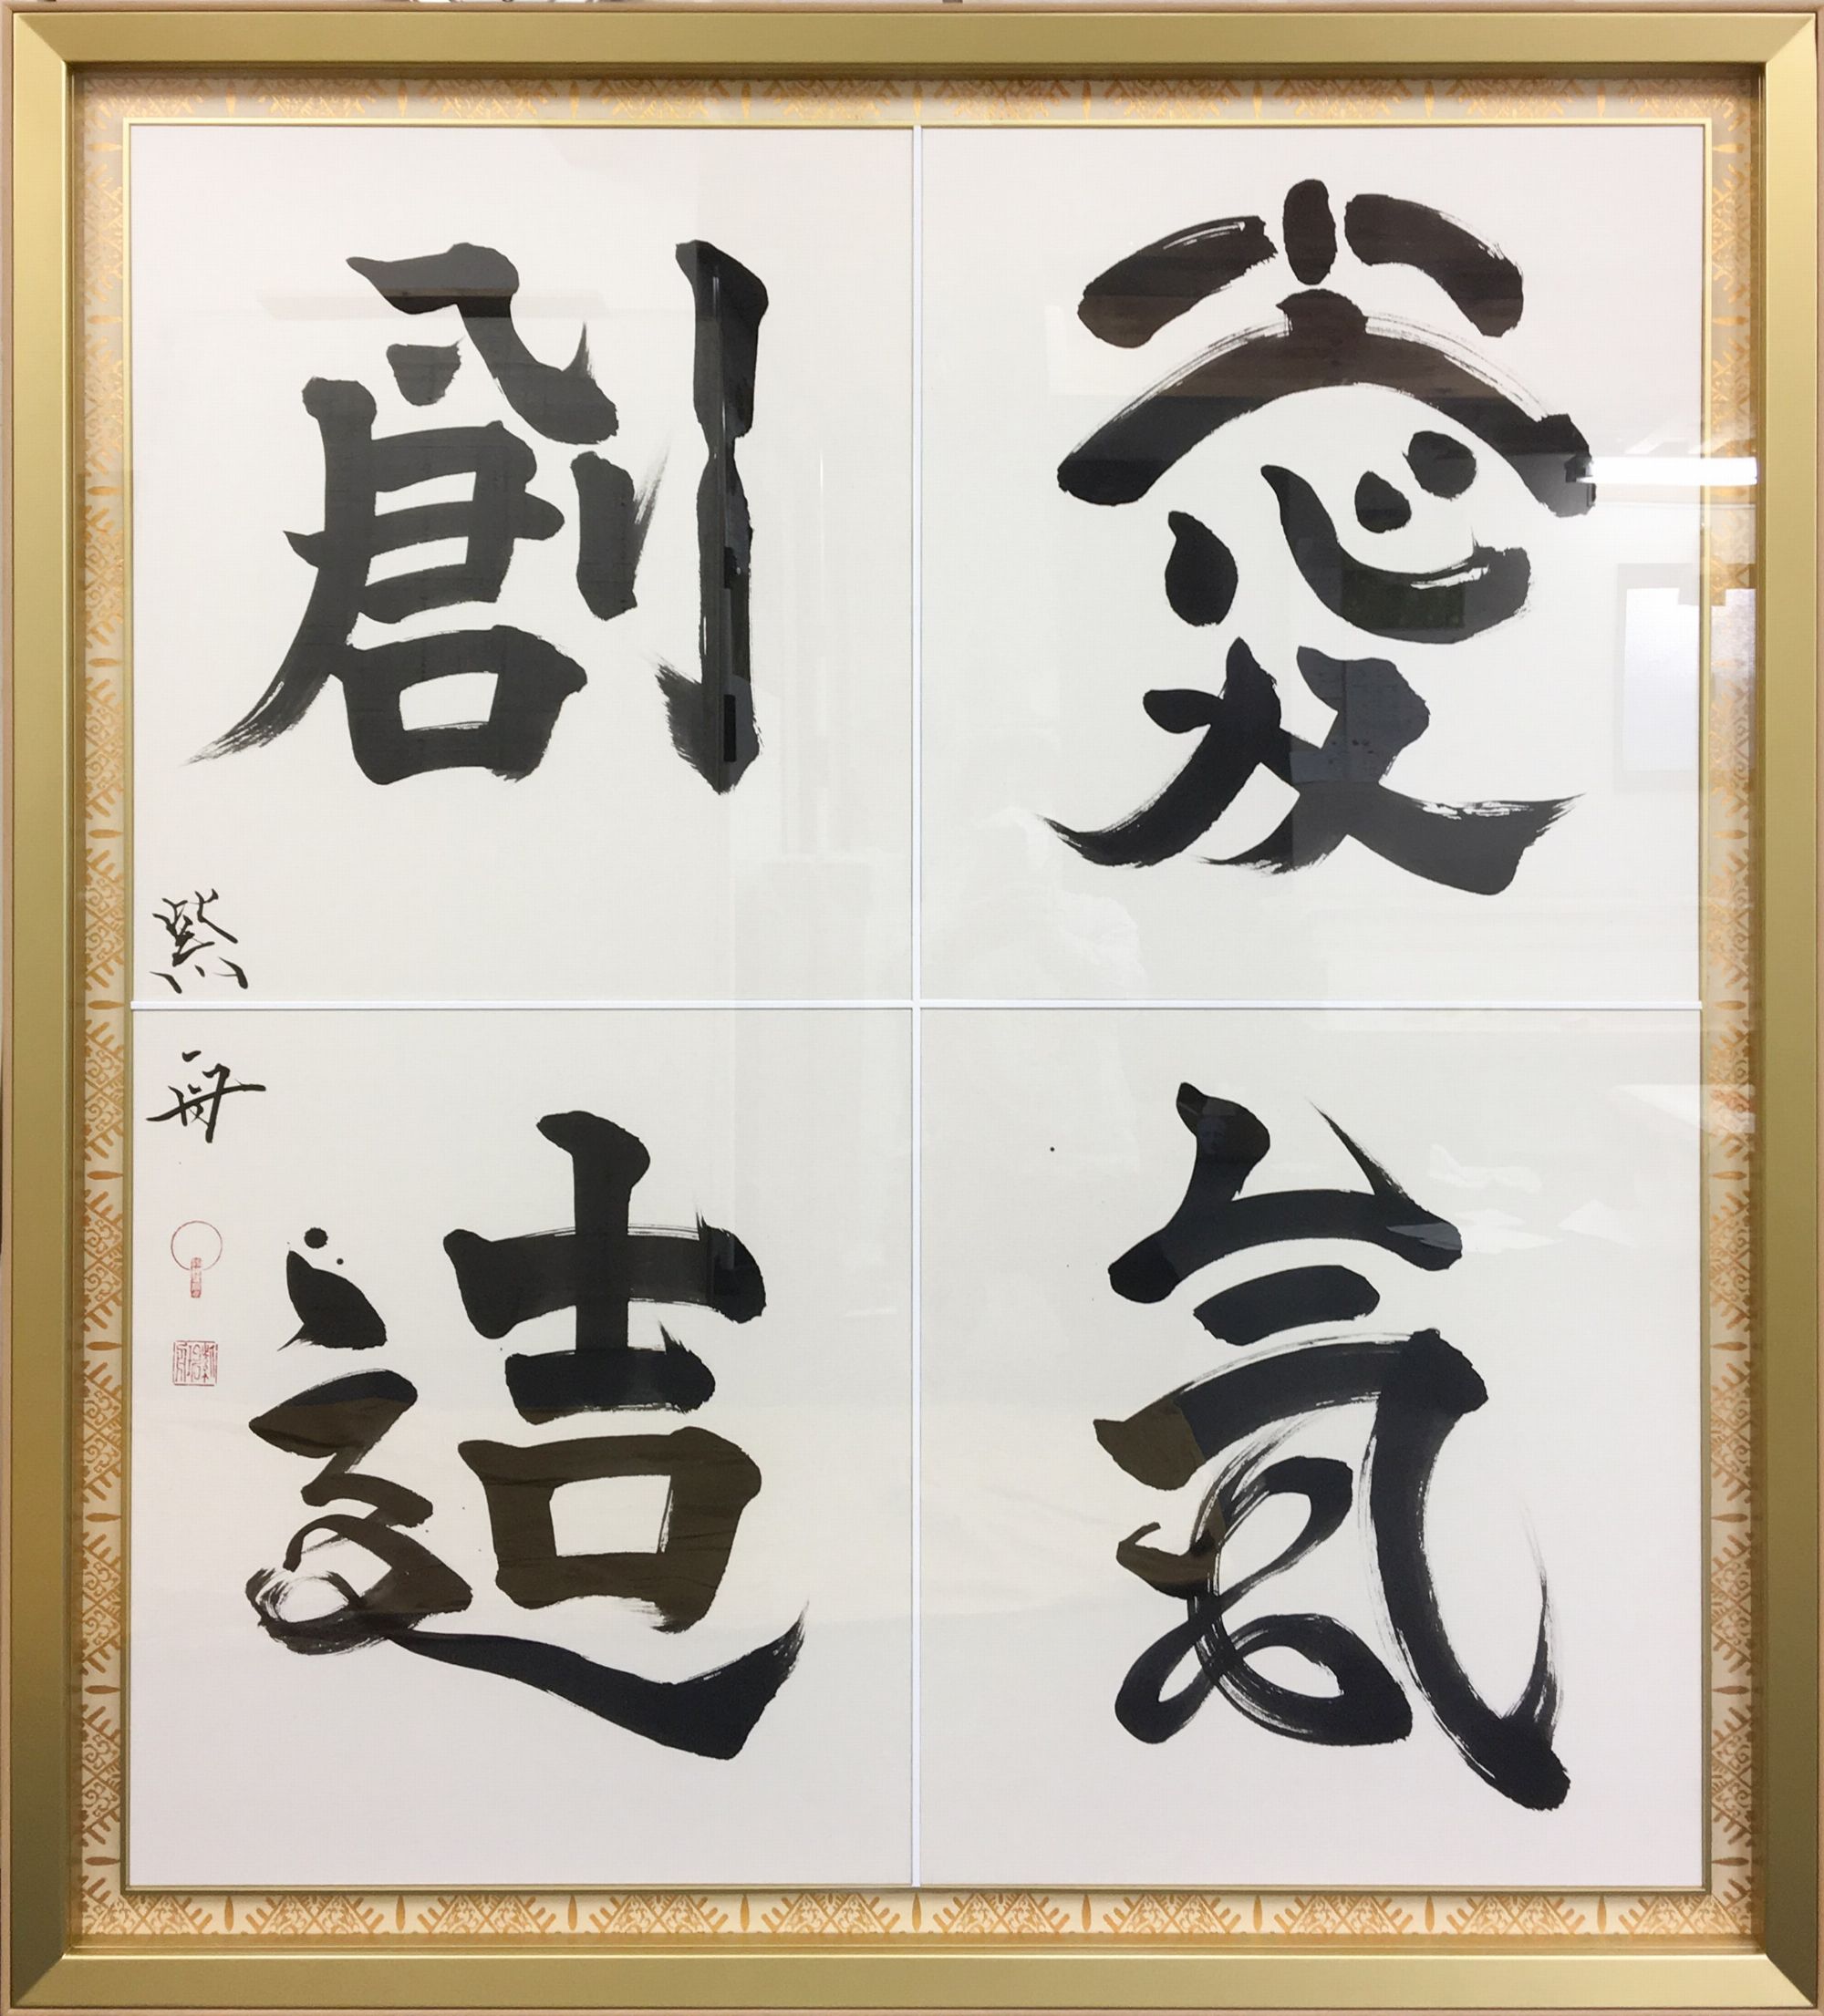 愛気
創造
紫舟